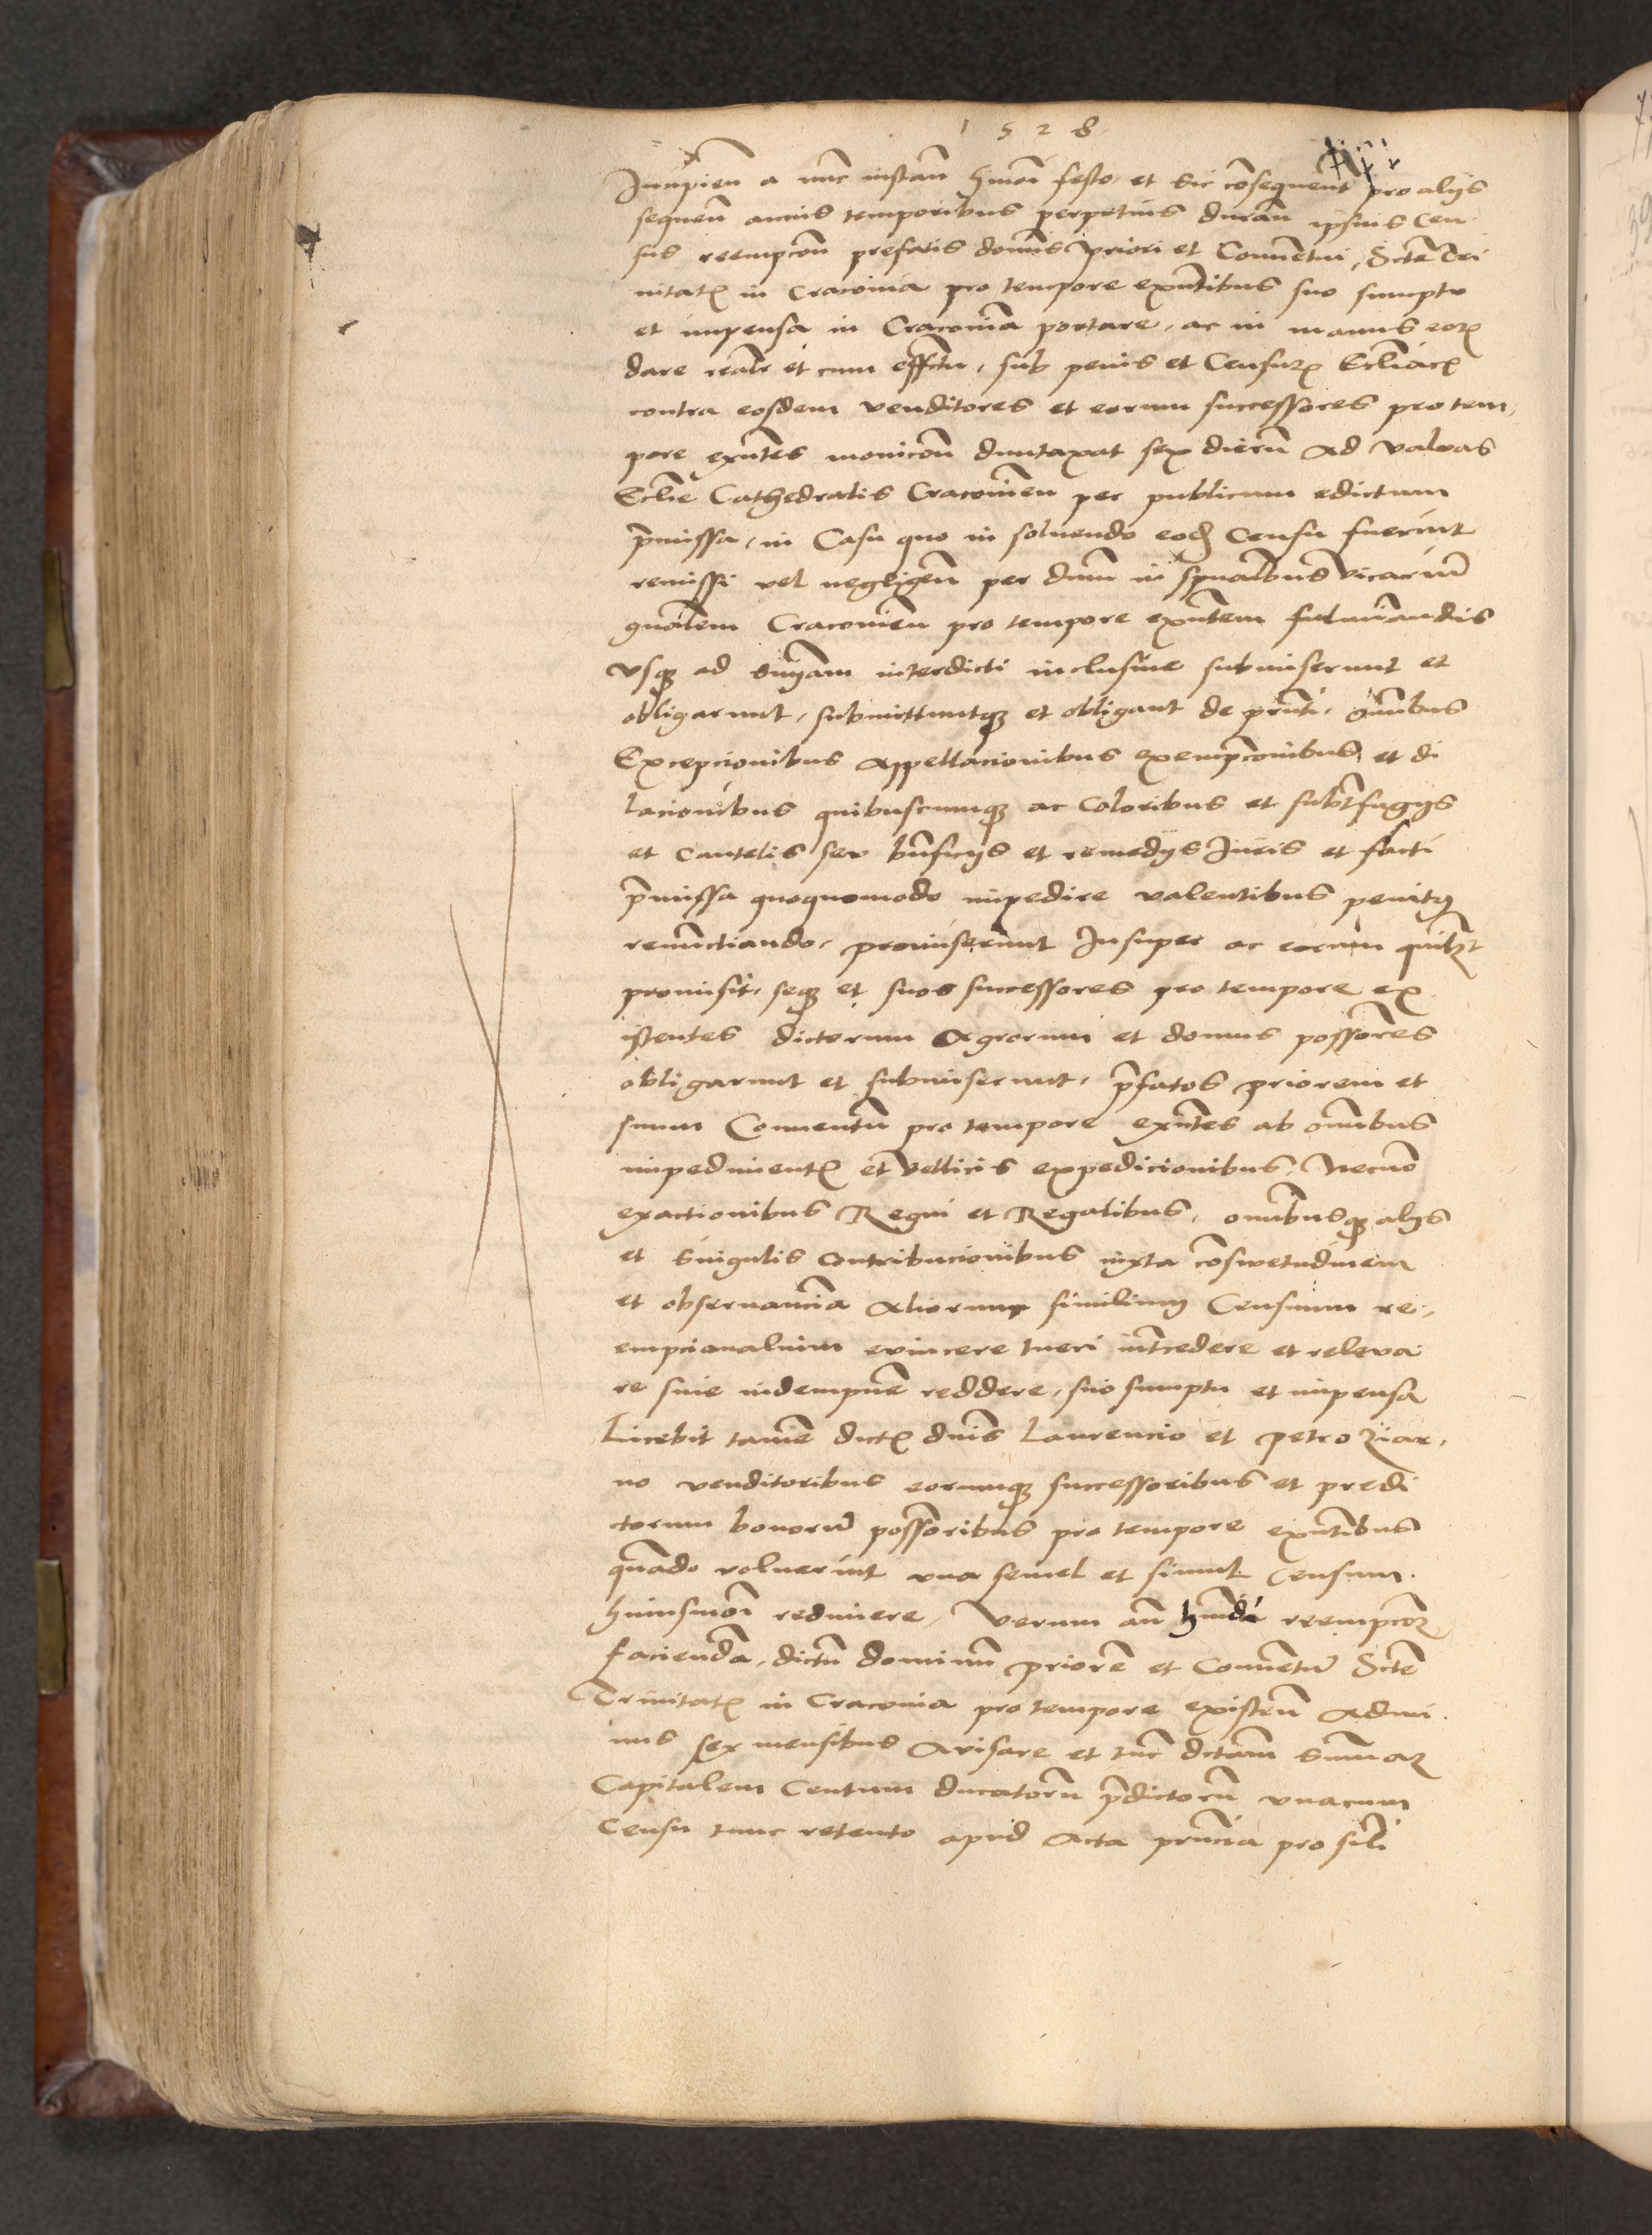 1528
Incipien a nunc instan hmoi festo et sic consequent pro alijs
sequen annis temporibus perpetuis duran ipsius Cen
sus reempcon prefatis domis priori et Conuentui, Scte Tri
nitatis in Cracouia pro tempore exntibus suo sumptu
et impensa in Cracouia portare, ac in manus eorum
dare realr et cum effctu, sub penis et Censuris Ecclíacis
contra eosdem venditores et eorum successores pro tem
pore exntes monicon duntaxat sex dierum ad valuas
Ecclie Cathedralis Cracouien per publicum edictum
premissa, in Casu quo in soluendo eodem Censu fuerint
remissi vel negligen per dnm in spualibus vicarium
gnalem Cracouien pro tempore exntem fulminandis
vsque ad sniam interdicti inclusiue submiserunt et
obligarunt, submittuntque et obligant de pnti, omnibus
Excepcionibus Appellacionibus exempconibus et di
lacionibus quibuscumque ac Coloribus et subtrfugijs
et Cautelis seu bnficijs et remedijs Juris et facti
premissa quoquomodo impedire valentibus penitus
renunctiando, promiserunt Insuper ac eorum quilibet
promisit, seque et suos successores pro tempore ex
istentes dictorum Agrorum et domus possores
obligarunt et submiserunt, prefatos priorem et
suum Conuentum pro tempore exntes ab omnibus
impedimentis et bellicis expedicionibus, Necnon
exactionibus Regni et Regalibus, omnibusque alijs
et singulis contribucionibus iuxta conswetudinem
et obseruancia Aliorum similium Censuum re,
empcionalium euincere tueri intrcedere et releua
re siue indempnem reddere, suo sumptu et impensa
Licebit tamen dictis dnis Laurencio et Petro ziar,
no venditoribus eorumque successoribus et predi
ctorum bonorum possoribus pro tempore exntibus
quando voluerint vna semel et simul Censum
huiusmoi redimere, Verum an hmoi reempcoem
facienda, dictum dominum priorem et Conuentum Scte
Trinitatis in Cracouia pro tempore existen admi
nus sex mensibus Avisare et tunc dictam summam
Capitalem Centum ducatorum predictorum vnacum
Censu tunc retento apud Acta pncia pro sili